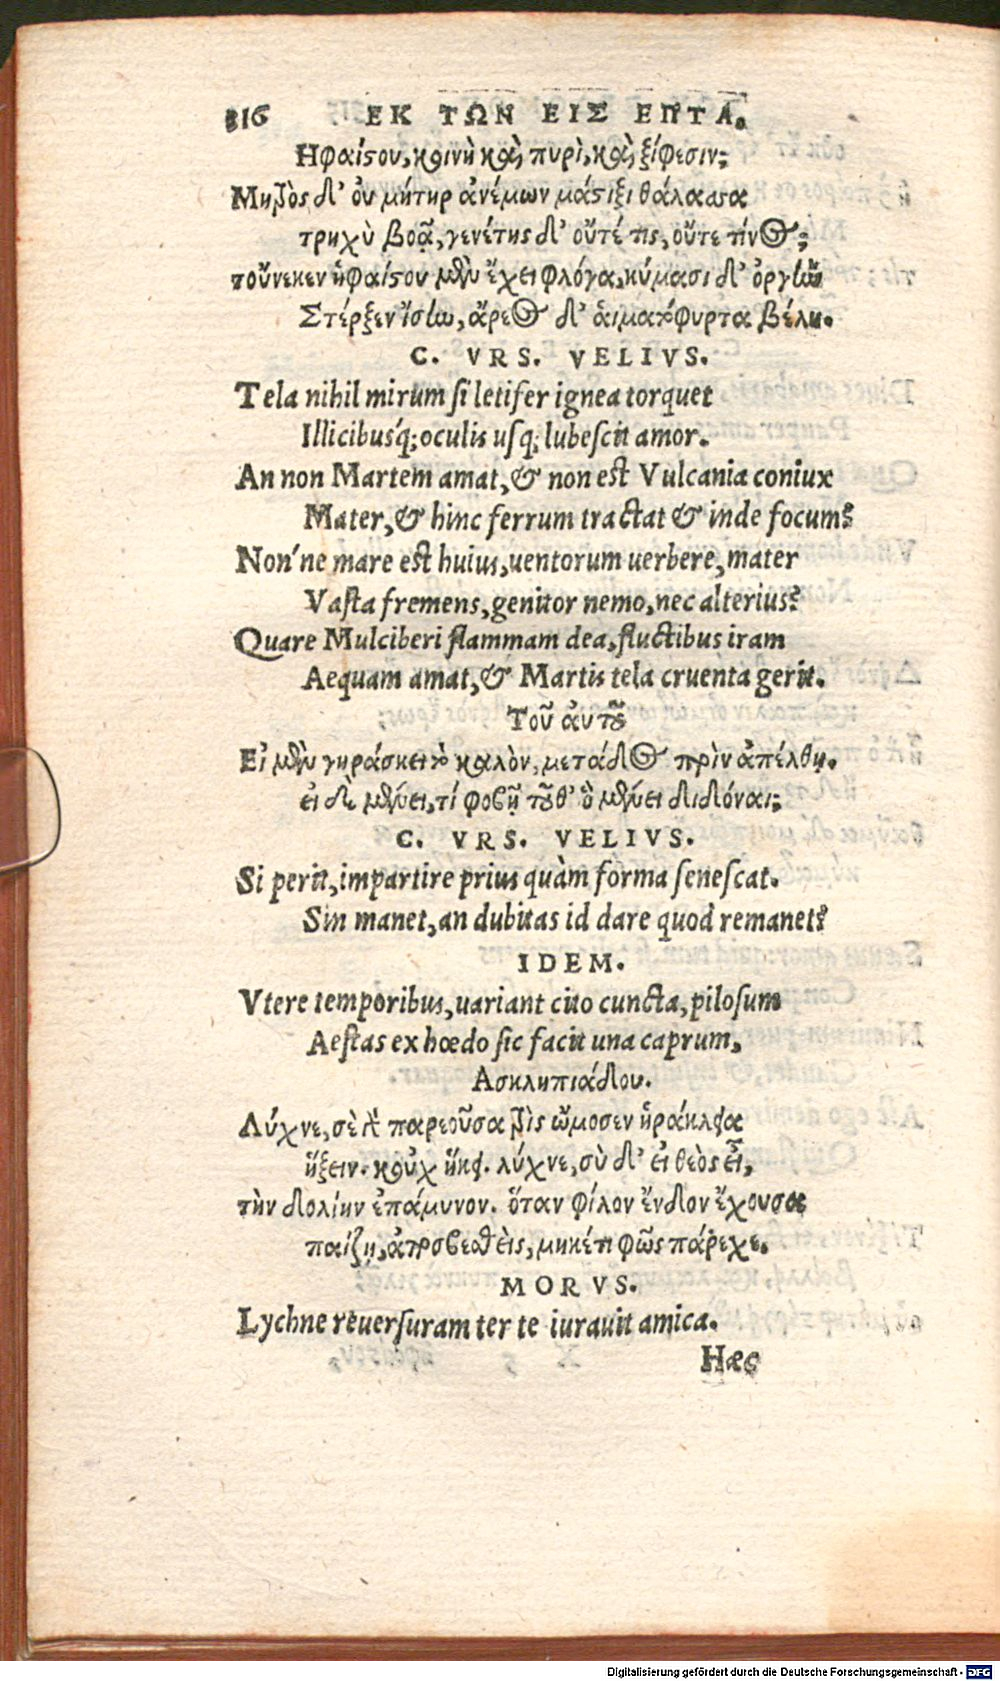 316 ΕΚ ΤΩΝ ΕΙΣ ΕΠΤΑ.
Ηφαίστου, κοινὴ καὶ πυρὶ, καὶ ξίφεσιν;
Μητρὸς δ' οὐ μήτηρ ἀνέμων μάστιξι θάλασσα
τρηχὺ βοᾷ, γενέτης δ' οὔτέ τις, οὔτε τίνος;
τοὔνεκεν ἡφαίστου μὲν ἔχει φλόγα, κύμασι δ' ὀργὴν
Στέρξεν ἴσην, ἄρεος δ' αἱματόφυρτα βέλη.
C. VRS. VELIVS.
Tela nihil mirum si letifer ignea torquet
Illicibus'q; oculis usq; lubescit amor.
An non Martem amat, & non est Vulcania coniux
Mater, & hinc ferrum tractat & inde focum?
Non'ne mare est huius, uentorum uerbere, mater
Vasta fremens, genitor nemo, nec alterius?
Quare Mulciberi flammam dea, fluctibus iram
Aequam amat, & Martis tela cruenta gerit.
Τοῦ αὐτοῦ
Εἰ μὲν γηράσκει τὸ καλὸν, μετάδος πρὶν ἀπέλθῃ.
εἰ δὲ μένει, τί φοβῇ τοῦθ' ὃ μένει διδόναι;
C. VRS. VELIVS.
Si perit, impartire prius quàm forma senescat.
Sin manet, an dubitas id dare quod remanet?
IDEM.
Vtere temporibus, uariant cito cuncta, pilosum
Aestas ex hœdo sic facit una caprum,
Ασκληπιάδου.
Λύχνε, σὲ γὰρ παρεοῦσα τρὶς ὤμοσεν ἡράκλεια
ἥξειν. κοὐχ ἥκει. λύχνε, σὺ δ' εἰ θεὸς εἶ,
τὴν δολίην ἐπάμυνον. ὅταν φίλον ἔνδον ἔχουσα
παίζῃ, ἀποσβεσθεὶς, μηκέτι φῶς πάρεχε.
MORVS.
Lychne reuersuram ter te iurauit amica.
Hæc
Digitalisierung gefördert durch die Deutsche Forschungsgemeinschaft - DFG